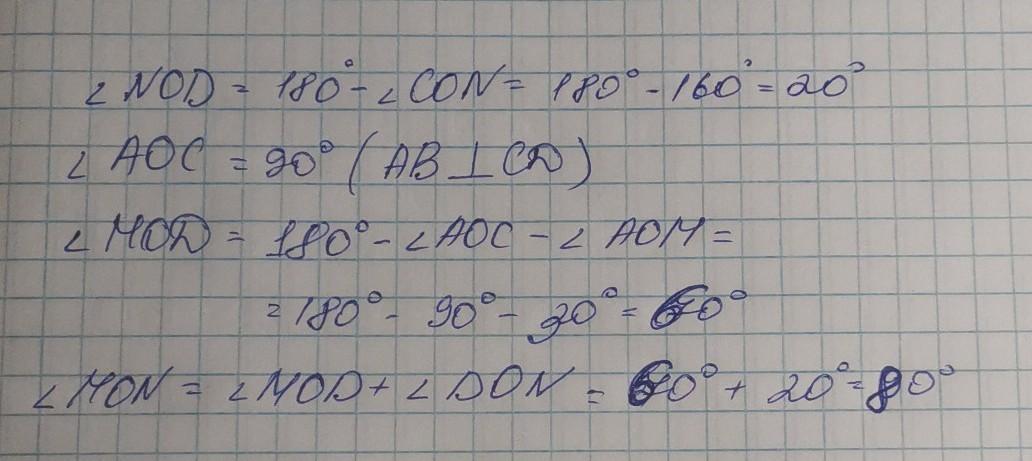 ∠NOD = 180° - ∠CON = 180° - 160° = 20°
∠AOC = 90° (AB ⊥ CD)
∠MOD = 180° - ∠AOC - ∠AOM =
= 180° - 90° - 30° = 60°
∠MON = ∠MOD + ∠DON = 60° + 20° = 80°